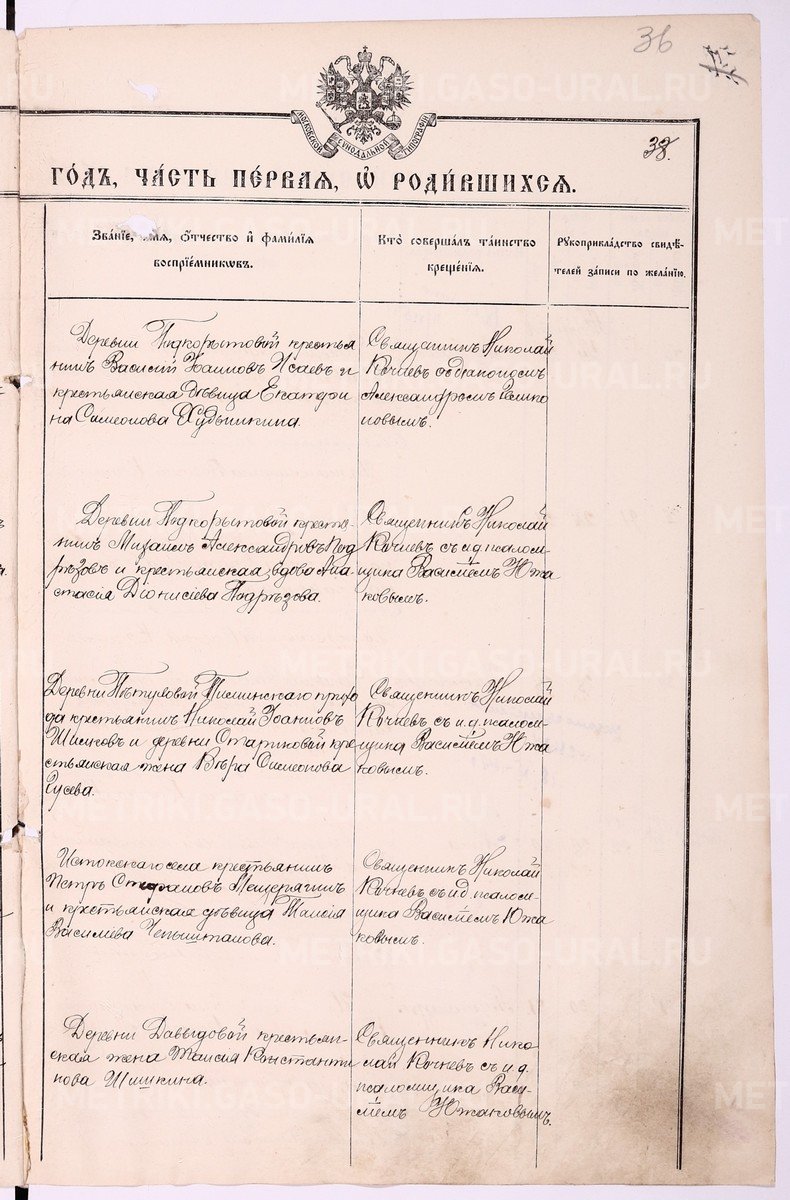 36
38.
МОСКОВСКОЙ СИНОДАЛЬНОЙ ТИПОГРАФІИ
ГО́ДЪ, ЧА́СТЬ ПЕ́РВАЯ, Ѡ҆ РОДИ́ВШИХСЯ.
Зва́нїе, и́мя, ѻ҆́тчество и҆ фами́лїя
воспрїе́мникѡвъ.
Кто̀ соверша́лъ та́инство
креще́нїя.
Рꙋкоприкла́дство свидѣ́-
телей за́писи по жела́нїю.
Деревни Подкорытовой крестья
нинъ Василій Іоанновъ Исаевъ и
крестьянская дѣвица Екатери
на Симеонова Худышкина.
Священникъ Николай
Кочневъ съ діакономъ
Александромъ
новымъ.
Деревни Подкорытовой кресть-
нинъ Михаилъ Александровъ Под
рѣзовъ и крестьянская вдова Ана
стасія Діонисіева Подрѣзова.
Священникъ Николай
Кочневъ съ и. д. псалом-
щика Василіемъ Южа
ковымъ.
Деревни Пышминскаго прихо
да крестьянинъ Николай Іоанновъ
и деревни Стариковой кре
стьянская жена Вѣра Симеонова
Гусева.
Священникъ Николай
Кочневъ съ и. д. псалом-
щика Василіемъ Южа
ковымъ.
Истокскаго села крестьянинъ
Петръ Стефановъ Мещерягинъ
и крестьянская дѣвица Таисія
Василіева Чепыштанова.
Священникъ Николай
Кочневъ съ и. д. псалом-
щика Василіемъ Южа
ковымъ.
Деревни Давыдовой крестьян-
ская жена Таисія Константи
нова Шишкина.
Священникъ Нико
лай Кочневъ съ и. д.
псаломщика Васи-
ліемъ Южаковымъ.
METRIKI.GASO-URAL.RU